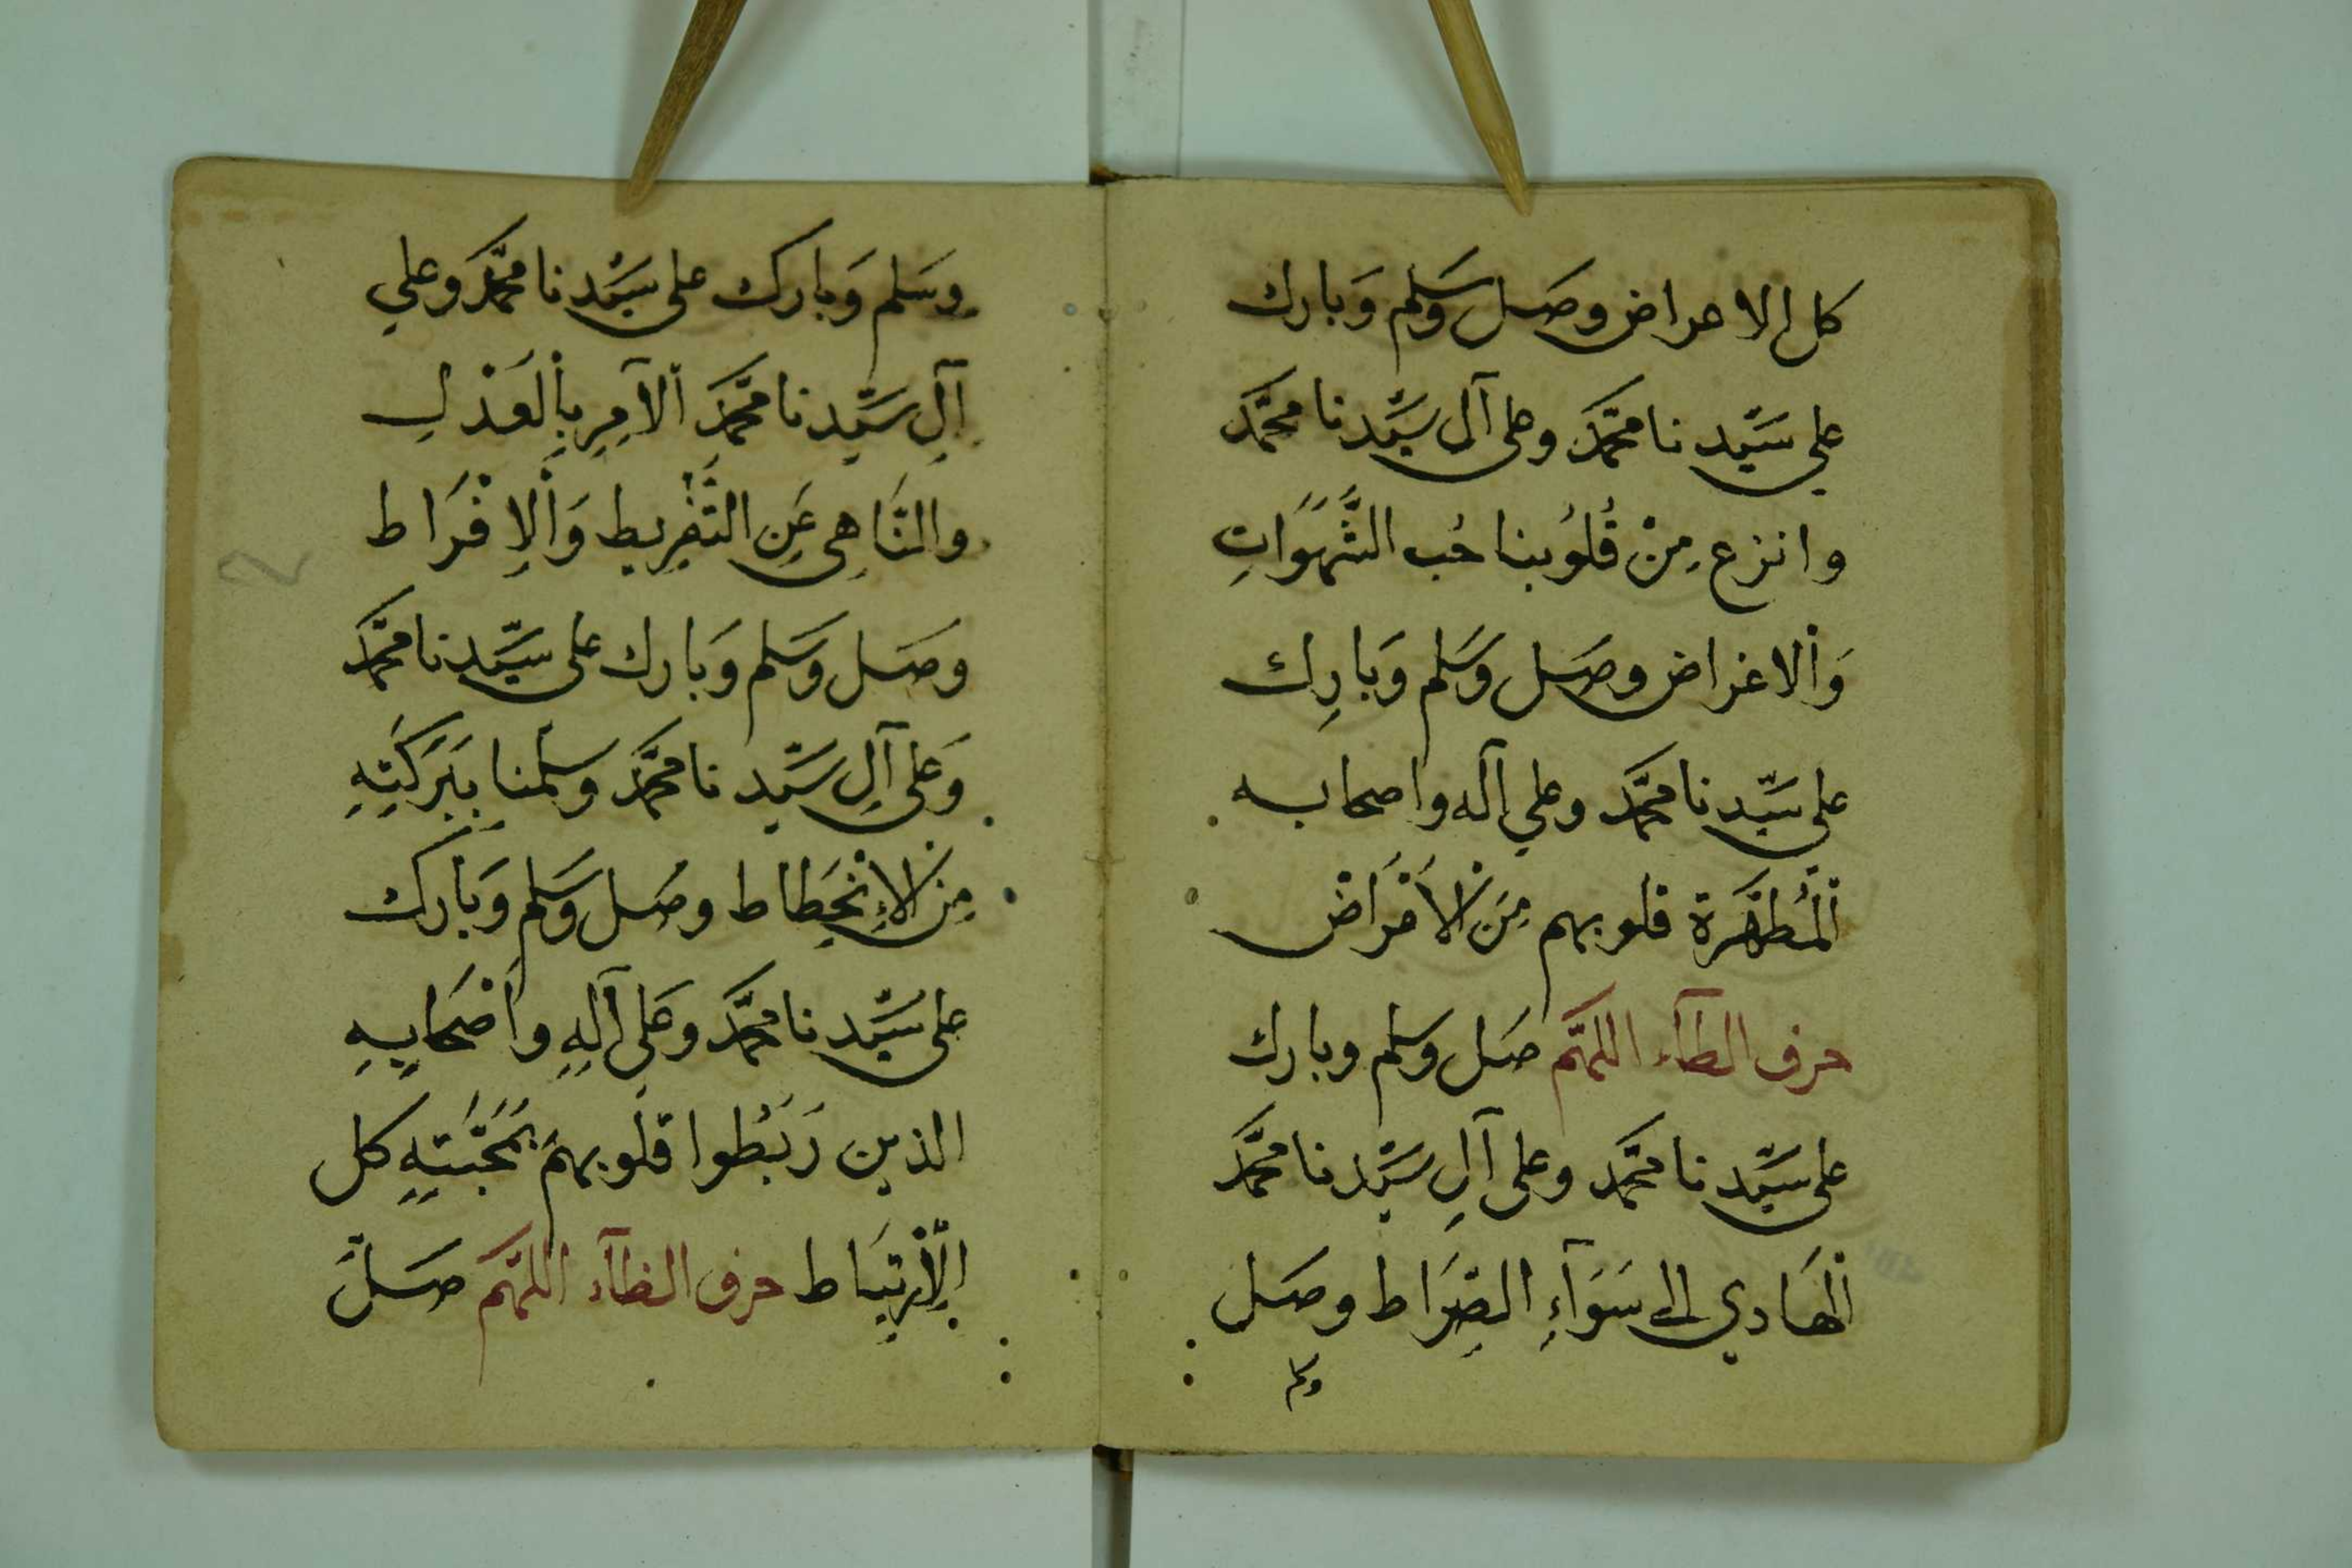 كل الاعراض وصل وسلم وبارك
على سيدنا محمد وعلى آل سيدنا محمد
وانزع من قلوبنا حب الشهوات
والاغراض وصل وسلم وبارك
على سيدنا محمد وعلي آله واصحابه
المطهرة قلوبهم من الأمراض
حرف الطآء اللهم صل وسلم وبارك
على سيدنا محمد وعلى آل سيدنا محمد
الهادي الى سوآء الصراط وصل
وسلم
وسلم وبارك على سيدنا محمد وعلي
آل سيدنا محمد الآمر بالعدل
والناهى عن التفريط والإفراط
وصل وسلم وبارك على سيدنا محمد
وعلى آل سيدنا محمد وسلمنا ببركته
من الإنحطاط وصل وسلم وبارك
على سيدنا محمد وعلى آله وأصحابه
الذين ربطوا قلوبهم بمحبته كل
الإرتباط حرف الظآء اللهم صل